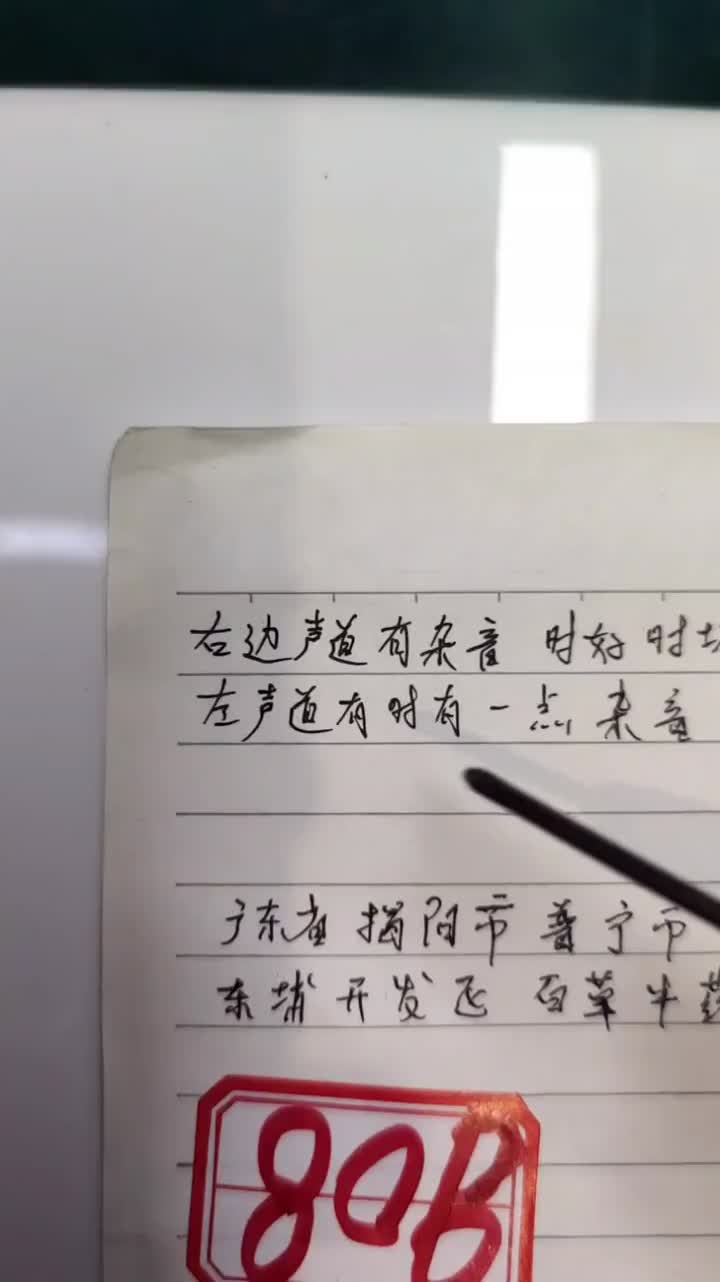 右边声道有杂音 时好时
左声道有时有一点杂音
广东省揭阳市普宁市
东埔开发区 百草牛
80B